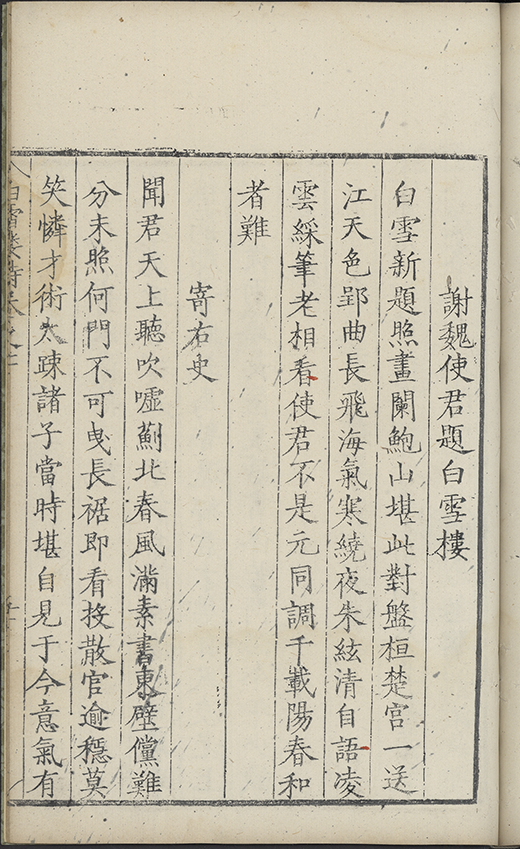 謝魏使君題白雪樓
白雪新題照畫闌鮑山堪此對盤桓楚宮一送
江天色郢曲長飛海氣寒繞夜朱絃清自語凌
雲綵筆老相看使君不是元同調千載陽春和
者難
寄右史
聞君天上聽吹噓薊北春風滿素書東壁儻難
分末照何門不可曳長裾即看投散官逾穩莫
笑憐才術太踈諸子當時堪自見于今意氣有
白雪樓詩卷之二